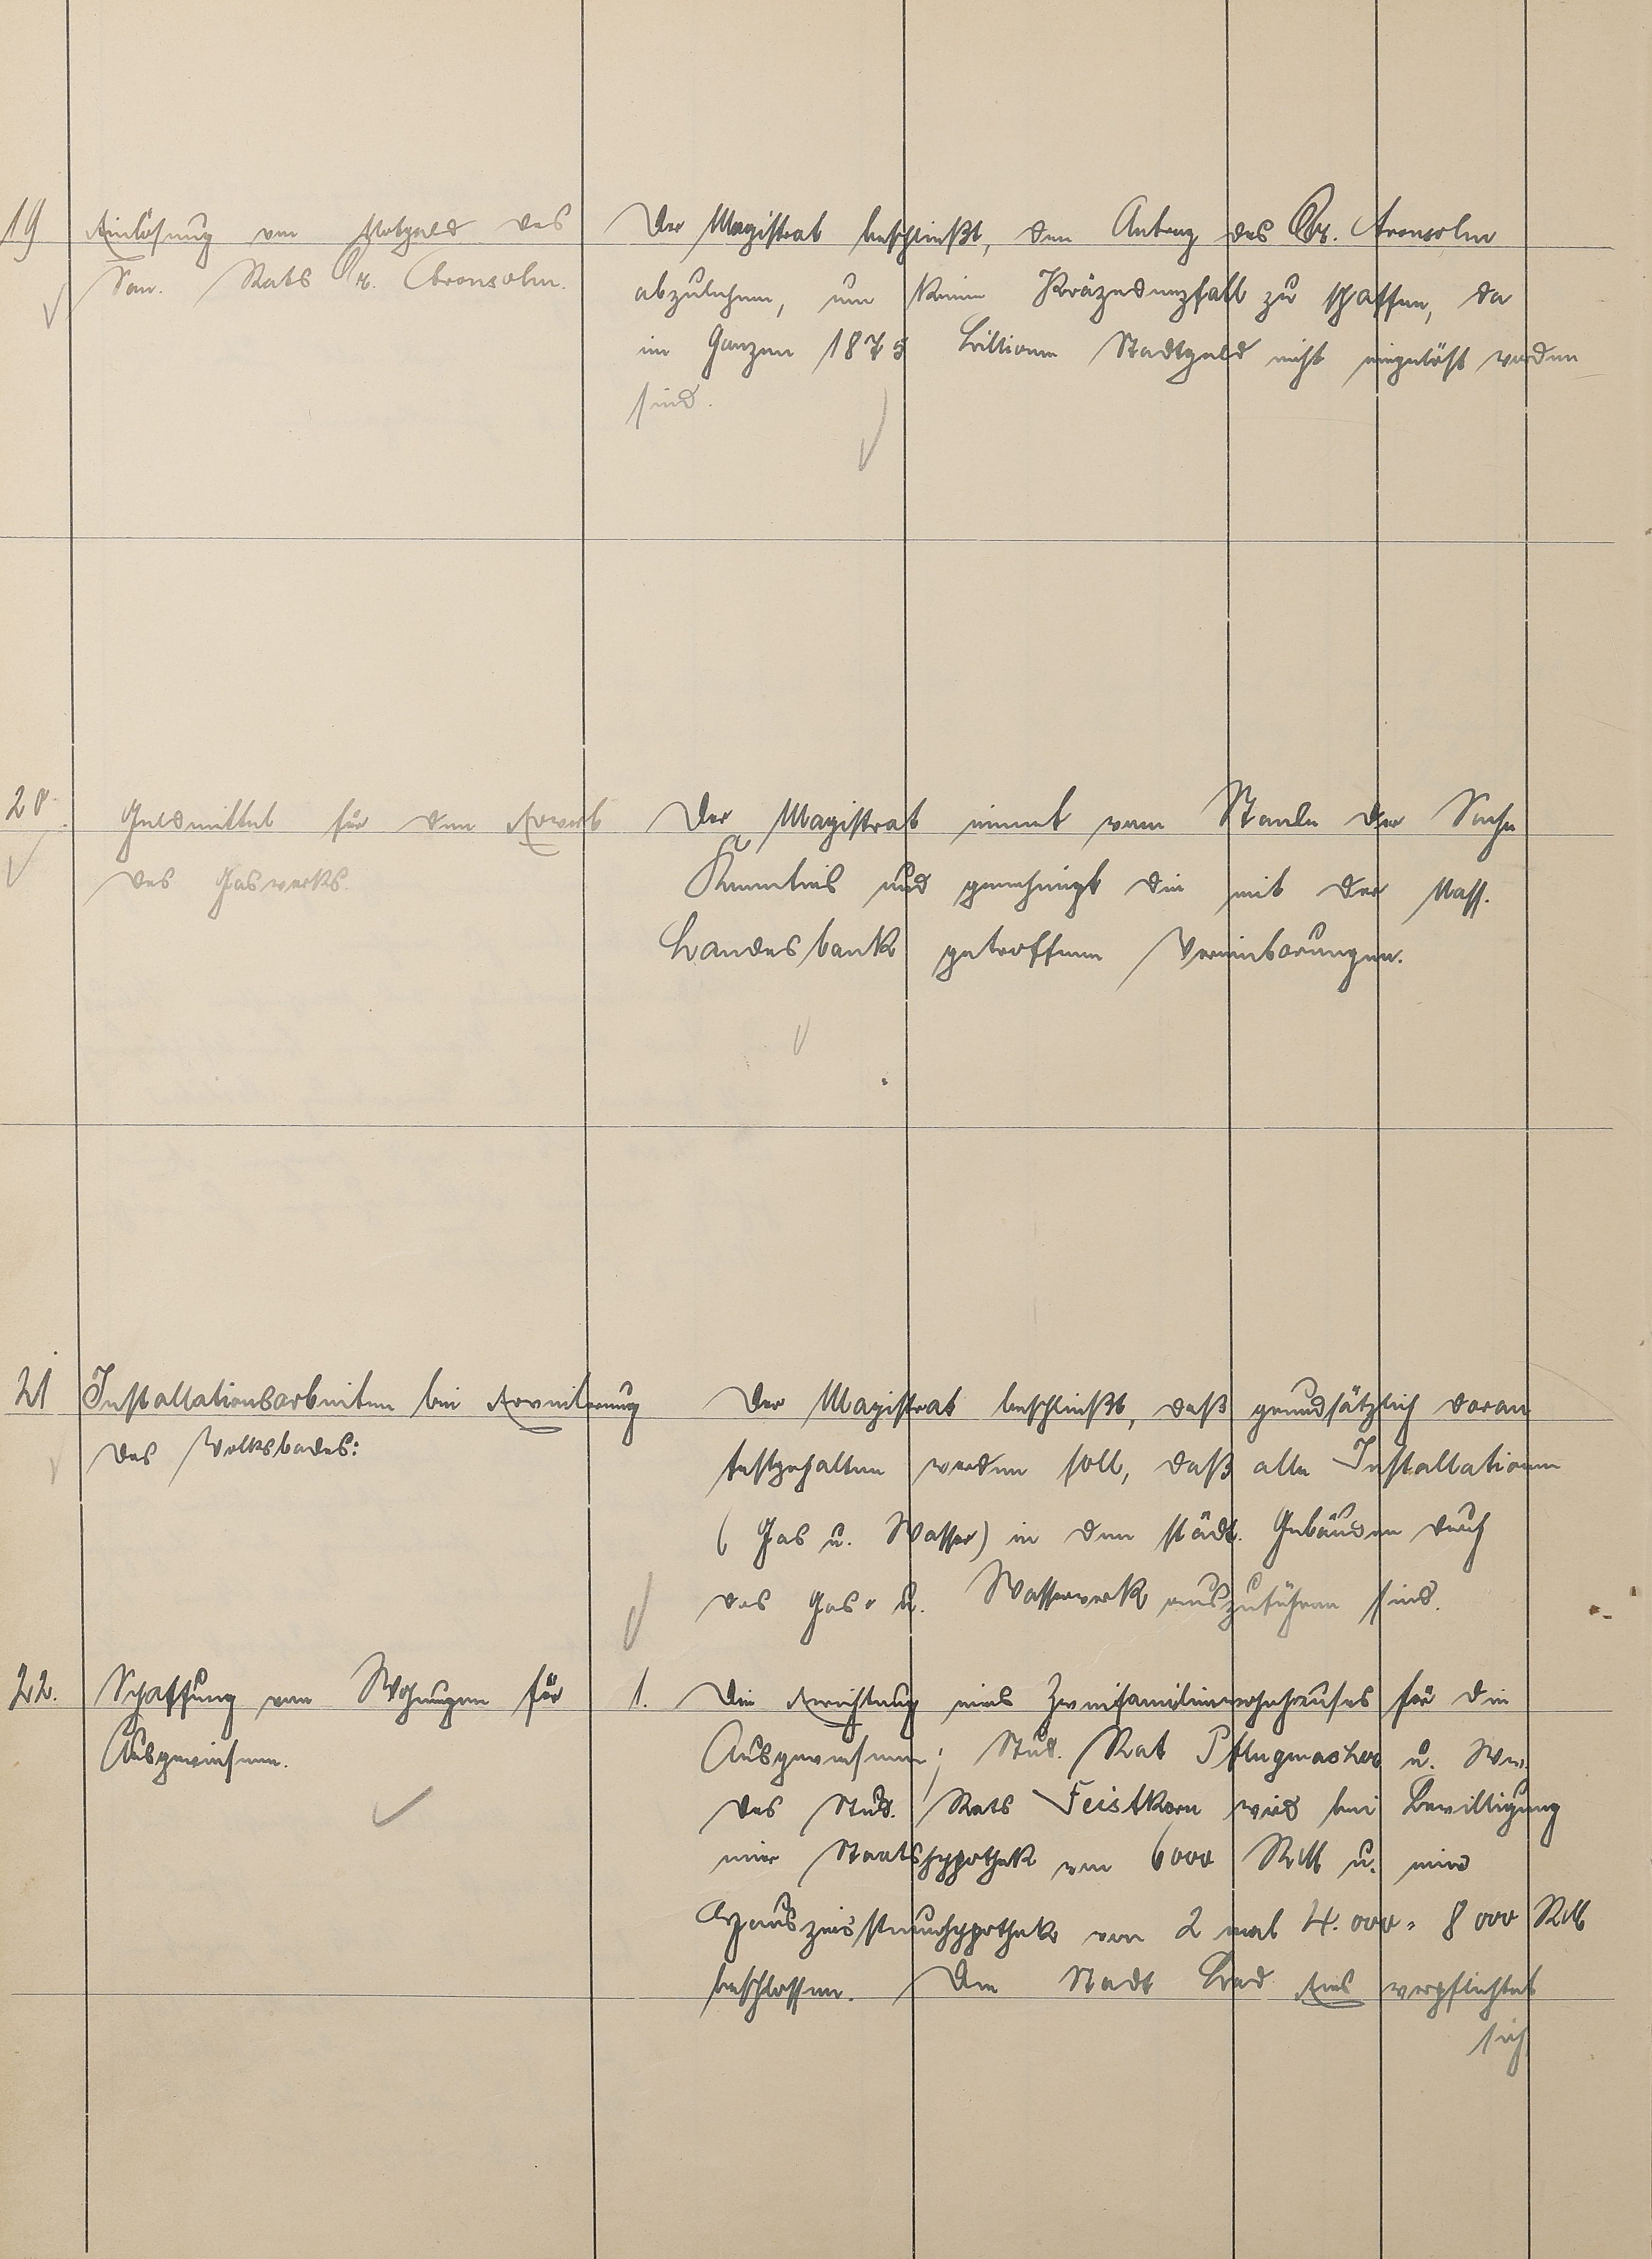 19
Einlösung von Notgeld des
San. Rats Dr. Aronsohn.
Der Magistrat beschließt, den Antrag des Dr. Aronsohn
abzulehnen, um keinen Präzedenzfall zu schaffen, da
im Ganzen 1875 Billionen Stadtgeld nicht eingelöst worden
sind.
20.
Geldmittel für den Erwerb
des Gaswerks.
Der Magistrat nimmt vom Stande der Sache
Kenntnis und genehmigt die mit der Nass.
Landesbank getroffenen Vereinbarungen.
21
Installationsarbeiten bei Erweiterung
des Volksbades:
Der Magistrat beschließt, daß grundsätzlich daran
festgehalten werden soll, daß alle Installationen
( Gas u. Wasser) in den städt. Gebäuden durch
das Gas- u. Wasserwerk auszuführen sind.
22.
Schaffung von Wohnungen für
Ausgewiesene.
1. Die Errichtung eines Zweifamilienwohnhauses für die
Ausgewiesenen, Stud. Rat Pflugmacher u. Wwe.
des Stud. Rats Feistkorn wird bei Bewilligung
einer Staatshypothek von 6000 RM u. einer
Hauszinssteuerhypothek von 2 mal 4.000 = 8 000 RM
beschlossen. Die Stadt Bad Ems verpflichtet
sich